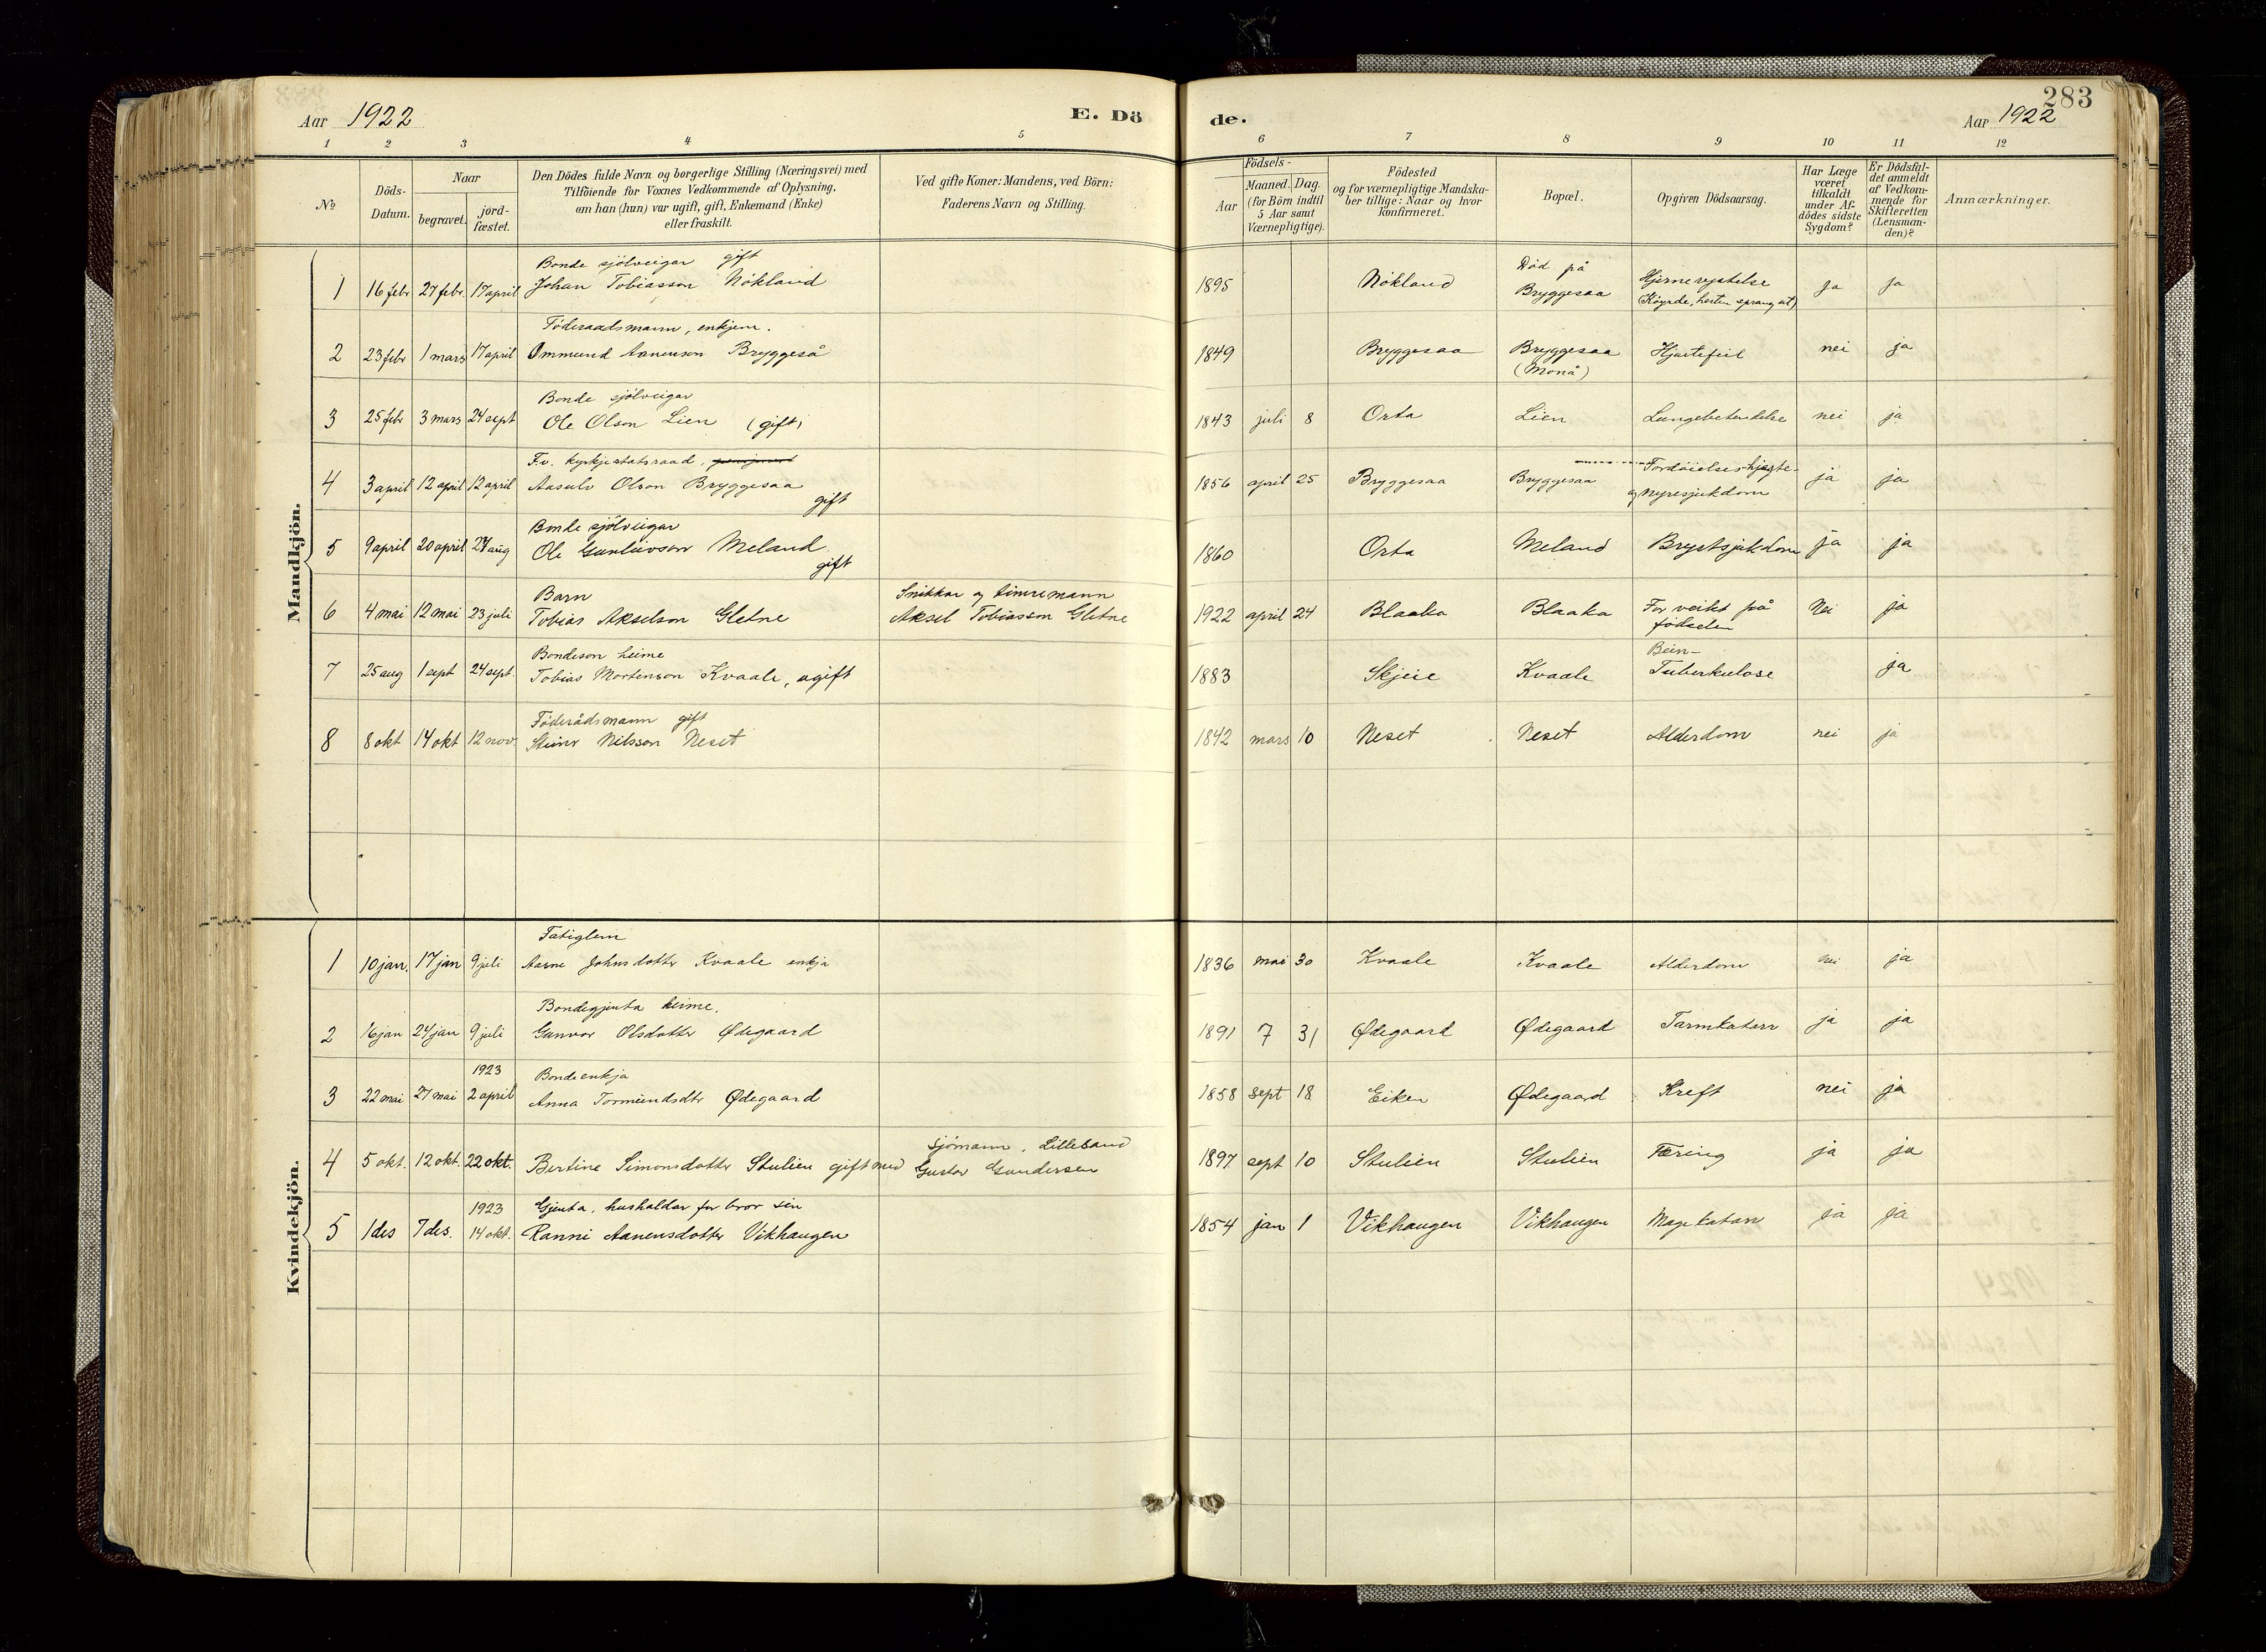 283
Aar 1922
E. Dö
de.
Aar 1922
1 2 3 4 5 6 7 8 9 10 11 12
№
Döds-Datum.
Naar
begravet.
jord-fæstet.
Den Dödes fulde Navn og borgerlige Stilling (Næringsvei) med
Tilföiende for Voxnes Vedkommende af Oplysning,
om han (hun) var ugift, gift, Enkemand (Enke)
eller fraskilt.
Ved gifte Koner: Mandens, ved Börn:
Faderens Navn og Stilling.
Födsels-
Aar
Maaned. Dag.
(for Börn indtil
5 Aar samt
Værnepligtige).
Födested
og for værnepligtige Mandska-
ber tillige: Naar og hvor
konfirmeret.
Bopæl.
Opgiven Dödsaarsag.
Har Læge
været
tilkaldt
under Af-
dödes sidste
Sygdom?
Er Dödsfal-
det anmeldt
af Vedkom-
mende for
Skifteretten
(Lensman-
den)?
Anmærkninger.
Mandkjön.
Bonde sjölveigar gift Död på Hjernerystelse
1 16 febr 27 febr. 17 april Johan Tobiasson Nökland 1895 Nökland Bryggesaa (Köyrde, hesten sprang ut) Ja Ja
Föderaadsmann, enkjem.
2 23 febr 1 mars 17 april Ommund Aanenson Bryggeså 1849 Bryggesaa Bryggesaa Hjartefeil nei ja
(Monå)
Bonde sjölveigar
3 25 febr 3 mars 24 sept Ole Olson Lien (gift) 1843 juli 8 Orta Lien Lungebetendelse nei ja
F.v. kyrkjestatsraad, Fordöielses-hjarte-
4 3 april 12 april 12 april Aasulv Olson Bryggesaa 1856 april 25 Bryggesaa Bryggesaa og nyresjukdom ja ja
gift
Bonde sjölveigar
5 9 april 20 april 27 aug Ole Gunleivson Meland 1860 Orta Meland Brystsjukdom ja ja
gift
Barn Snikkar og timremann
6 4 mai 12 mai 23 juli Tobias Akselson Gletne Aksel Tobiasson Gletne 1922 april 24 Blaaka Blaaka For veikt på Nei ja
födselen
Bondeson heime Bein-
7 25 aug 1 sept 24 sept. Tobias Mortenson Kvaale, ugift 1883 Skjeie Kvaale Tuberkulose ja
Föderådsmann gift
8 8 okt 14 okt 12 nov. Steinr Nilsson Neset 1842 mars 10 Neset Neset Alderdom nei ja
Kvindekjön.
Fatiglem
1 10 jan. 17 jan 9 juli Aasne Johnsdotter Kvaale enkja 1836 mai 30 Kvaale Kvaale Alderdom nei ja
Bondegjenta heime.
2 16 jan 24 jan 9 juli Gunvor Olsdotter Ødegaard 1891 7 31 Ødegaard Ødegaard Tarmkatarr ja ja
1923 Bondeenkja
3 22 mai 27 mai 2 april Anna Tormundsdtr Ødegaard 1858 sept 18 Eiken Ødegaard Kreft nei ja
sjömann, Lillesand
4 5 okt. 12 okt. 22 okt. Bertine Simonsdotter Stulien gift med Gustav Gundersen 1897 sept 10 Stulien Stulien Tæring ja ja
1923 Gjenta, hushaldar for bror sin
5 1 des 7 des. 14 okt. Ranni Aanensdotter Vikhaugen 1854 jan 1 Vikhaugen Vikhaugen Magekatarr ja ja